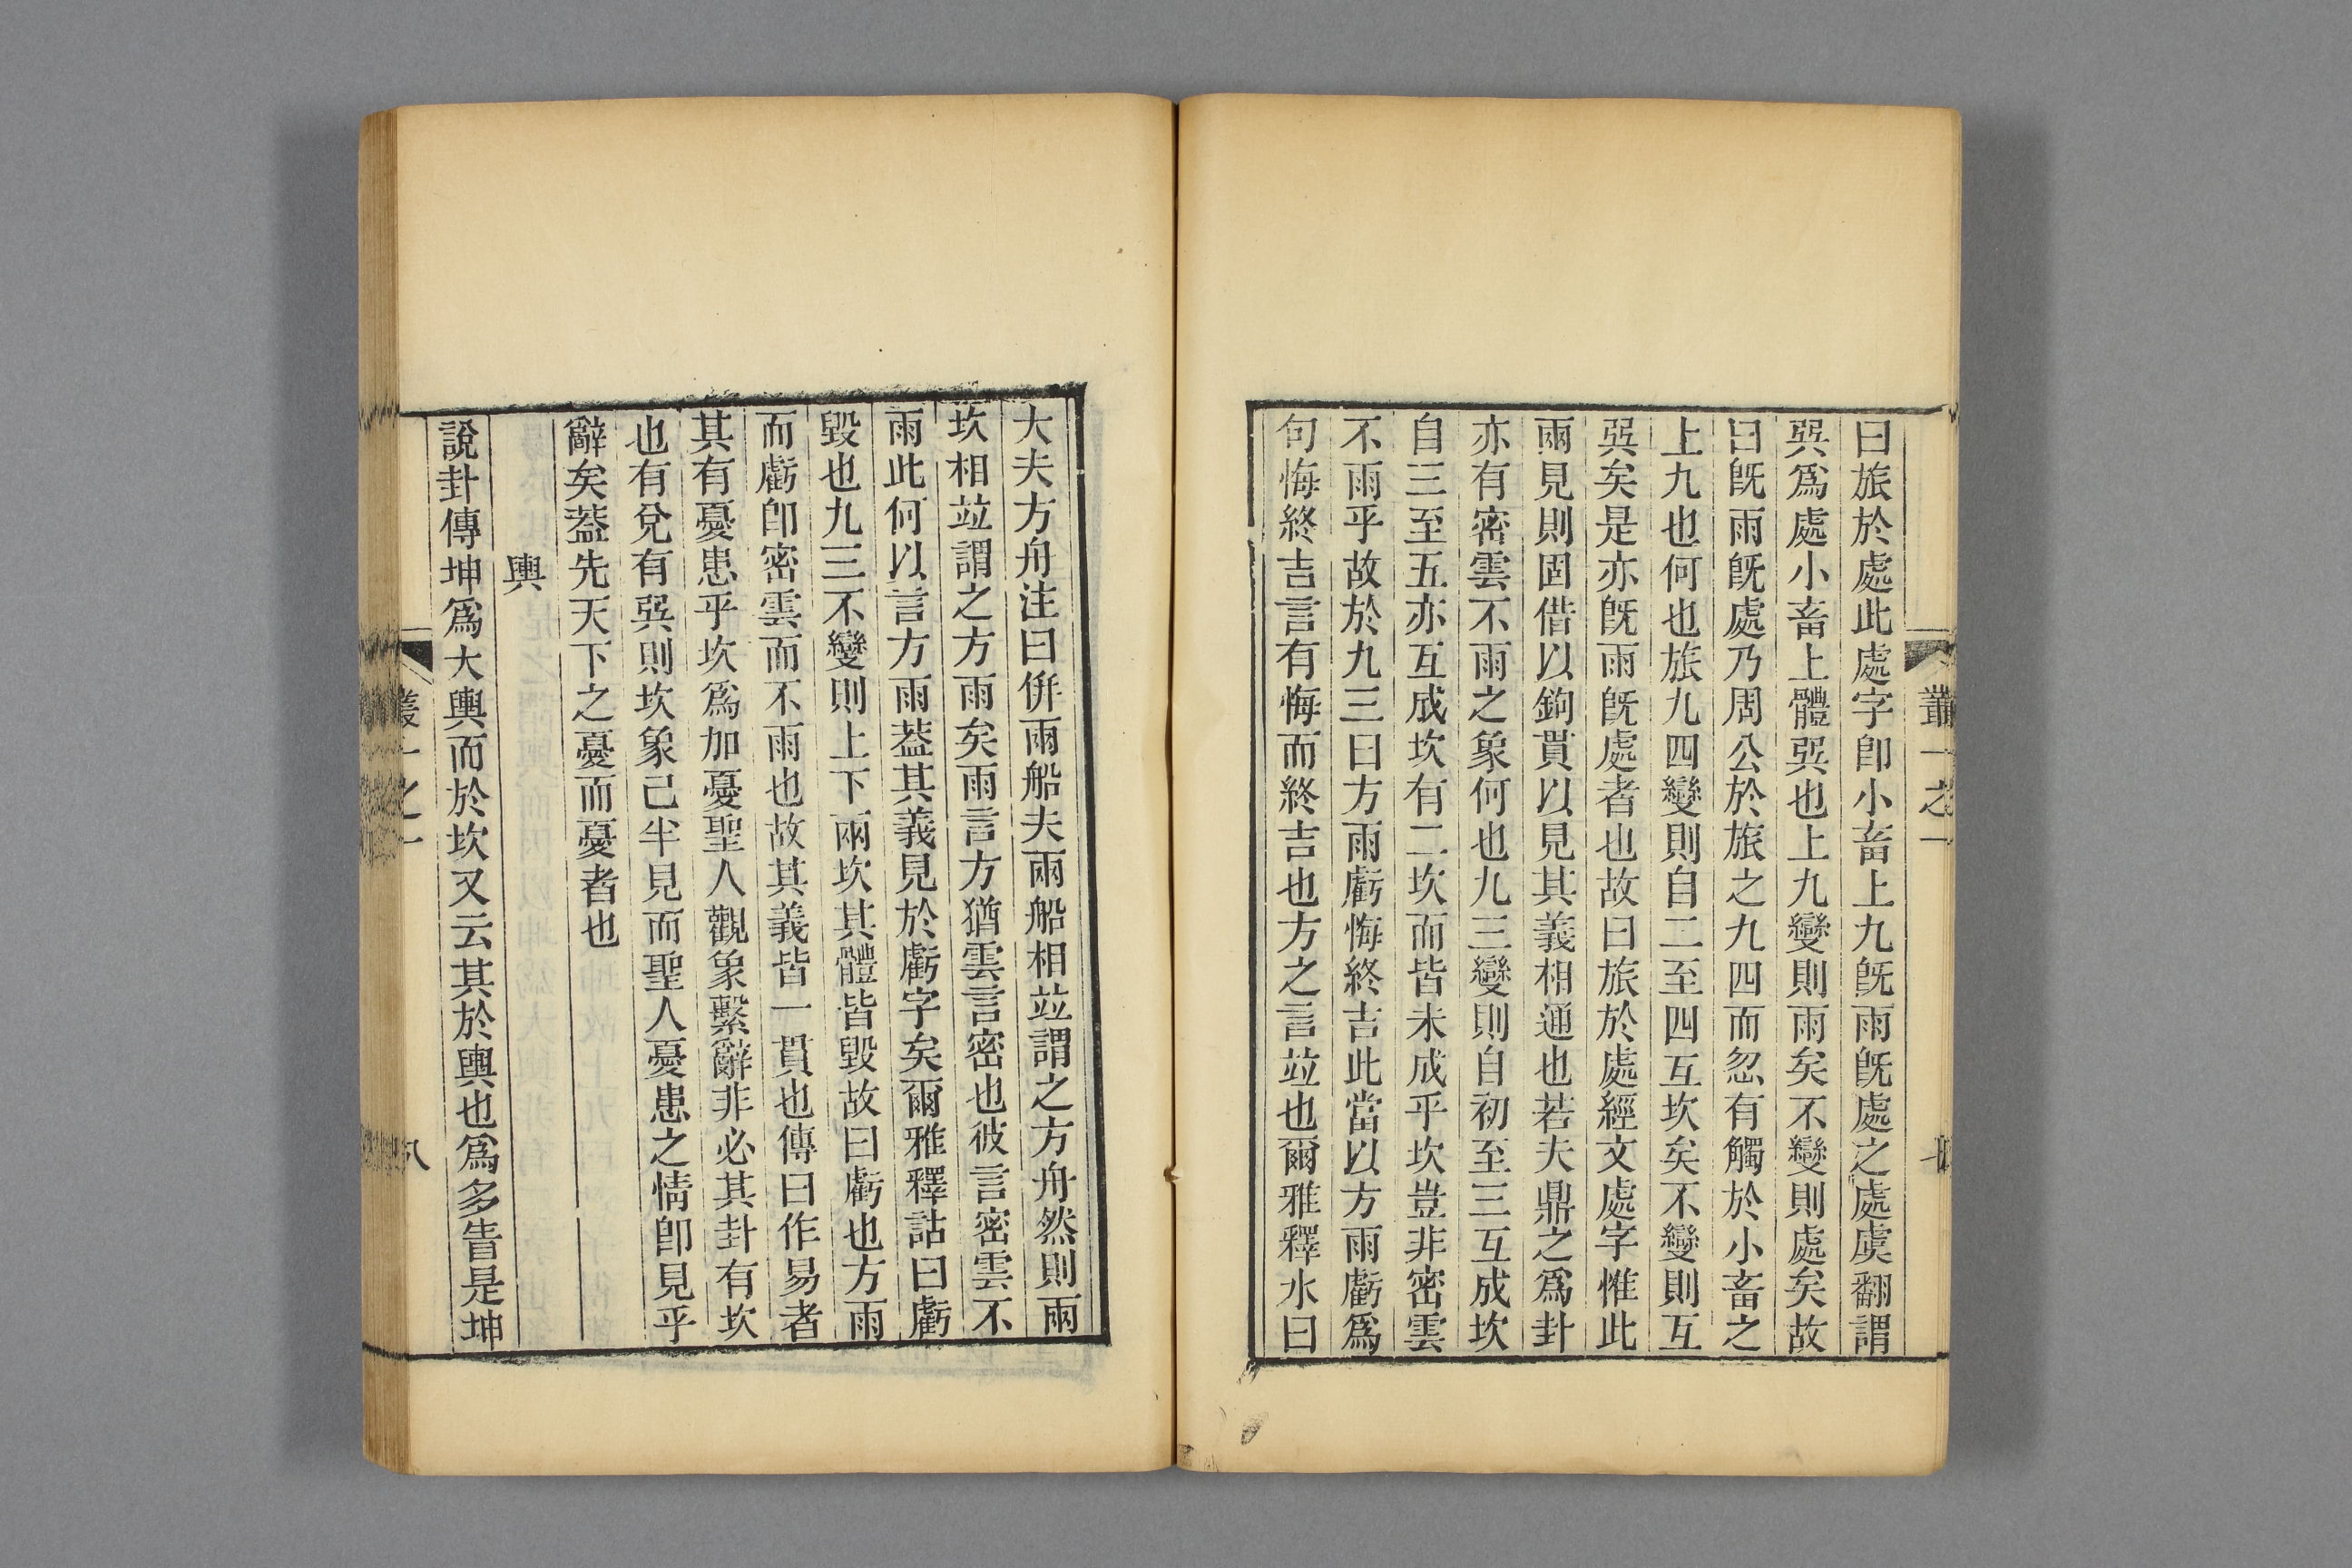 曰旅於處此處字卽小畜上九旣雨旣處之處虞翻謂
巽爲處小畜上體巽也上九變則雨矣不變則處矣故
曰旣雨旣處乃周公於旅之九四而忽有觸於小畜之
上九也何也旅九四變則自二至四互坎矣不變則互
巽矣是亦旣雨旣處者也故曰旅於處經文處字惟此
兩見則固借以鉤貫以見其義相通也若夫鼎之爲卦
亦有密雲不雨之象何也九三變則自初至三互成坎
自三至五亦互成坎有二坎而皆未成乎坎豈非密雲
不雨乎故於九三曰方雨虧悔終吉此當以方雨虧爲
句悔終吉言有悔而終吉也方之言竝也爾雅釋水曰
大夫方舟注曰併兩船夫兩船相竝謂之方舟然則兩
坎相竝謂之方雨矣雨言方猶雲言密也彼言密雲不
雨此何以言方雨葢其義見於虧字矣爾雅釋詁曰虧
毀也九三不變則上下兩坎其體皆毀故曰虧也方雨
而虧卽密雲而不雨也故其義皆一貫也傳曰作易者
其有憂患乎坎爲加憂聖人觀象繫辭非必其卦有坎
也有兌有巽則坎象已半見而聖人憂患之情卽見乎
辭矣葢先天下之憂而憂者也
輿
說卦傳坤爲大輿而於坎又云其於輿也爲多眚是坤
叢一之一
八